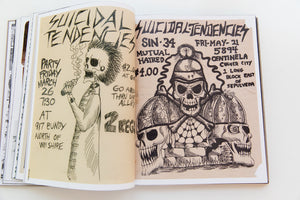 SUICIDAL
TENDENCIES
PARTY
FRIDAY
MARCH
26
730
AT
NORTH OF
WILSHIRE
2 KEGS
SUICIDAL TENDENCIES
SIN·34
MUTUAL
HATRED
$4.00
FRI·MAY·21
5894
CENTINELA
CULVER CITY
1 LONG
BLOCK EAST OF
SEPULVEDA